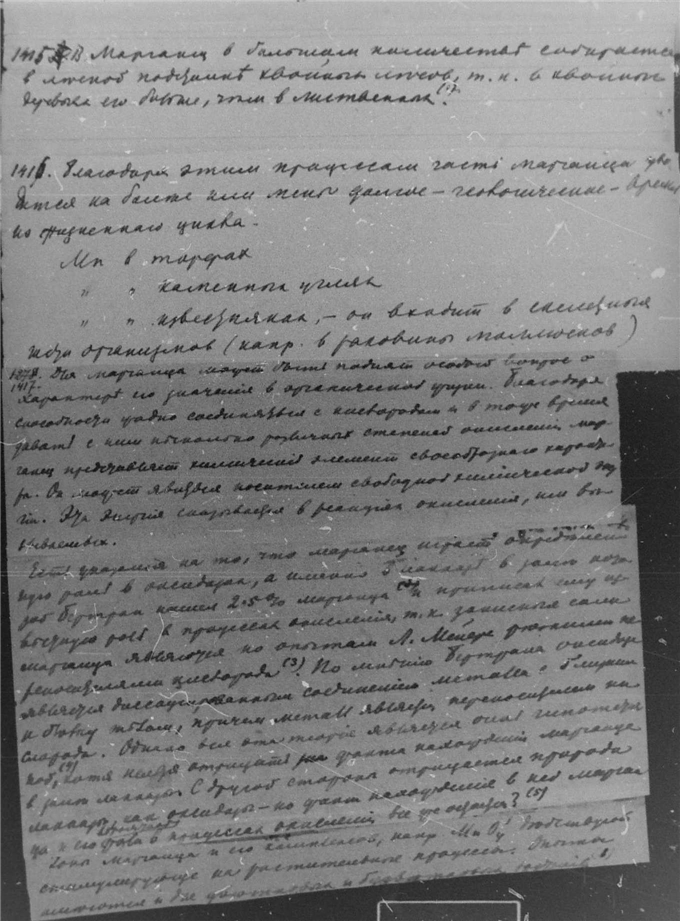 1415. Марганец в большом количестве собирается
в лесной подстилке хвойных лесов, т. к. в хвойных
деревьях его больше, чем в лиственных.
1416. Благодаря этим процессам часть марганца
на более или менее долгое – геологическое – время
из жизненного цикла.
Mn в торфах
" " каменных углях
" " известняках, – он входит в
организмов (напр. в раковины моллюсков)
1417. Для марганца может быть поднят особый вопрос о
характере его значения в органической
Благодаря
способности соединяться с кислородом и в то же время
давать с ним несколько различных степеней окисления мар-
ганец представляет химический элемент своеобразного характе-
ра. Он может являться носителем свободной химической энер-
гии. Эта энергия сказывается в реакциях окисления, им вы-
зываемых.
Есть указания на то, что марганец играет определен-
ную роль в оксидазах, а именно в лаказе
Бертран нашел 2.5% марганца и приписал ему из-
вестную роль в процессах окисления, т. к. закисные соли
марганца являются по опытам А. Мейера пе-
реносителями кислорода (3). По мнению Бертрана оксидаза
является диссоциированным соединением металла с близким
к белку телом, причем металл является переносителем ки-
слорода. Однако вся эта теория является пока гипотезой
(4), хотя нельзя отрицать факта нахождения марганца
в золе лаказы. С другой стороны отрицается природа
лаказы как оксидазы – но факт нахождения в ней марган-
ца и его роль в процессах окисления все же (5)
Ионы марганца и его комплексов, напр. MnO₄' действуют
стимулирующе на растительные процессы. Опыты
имеются и для